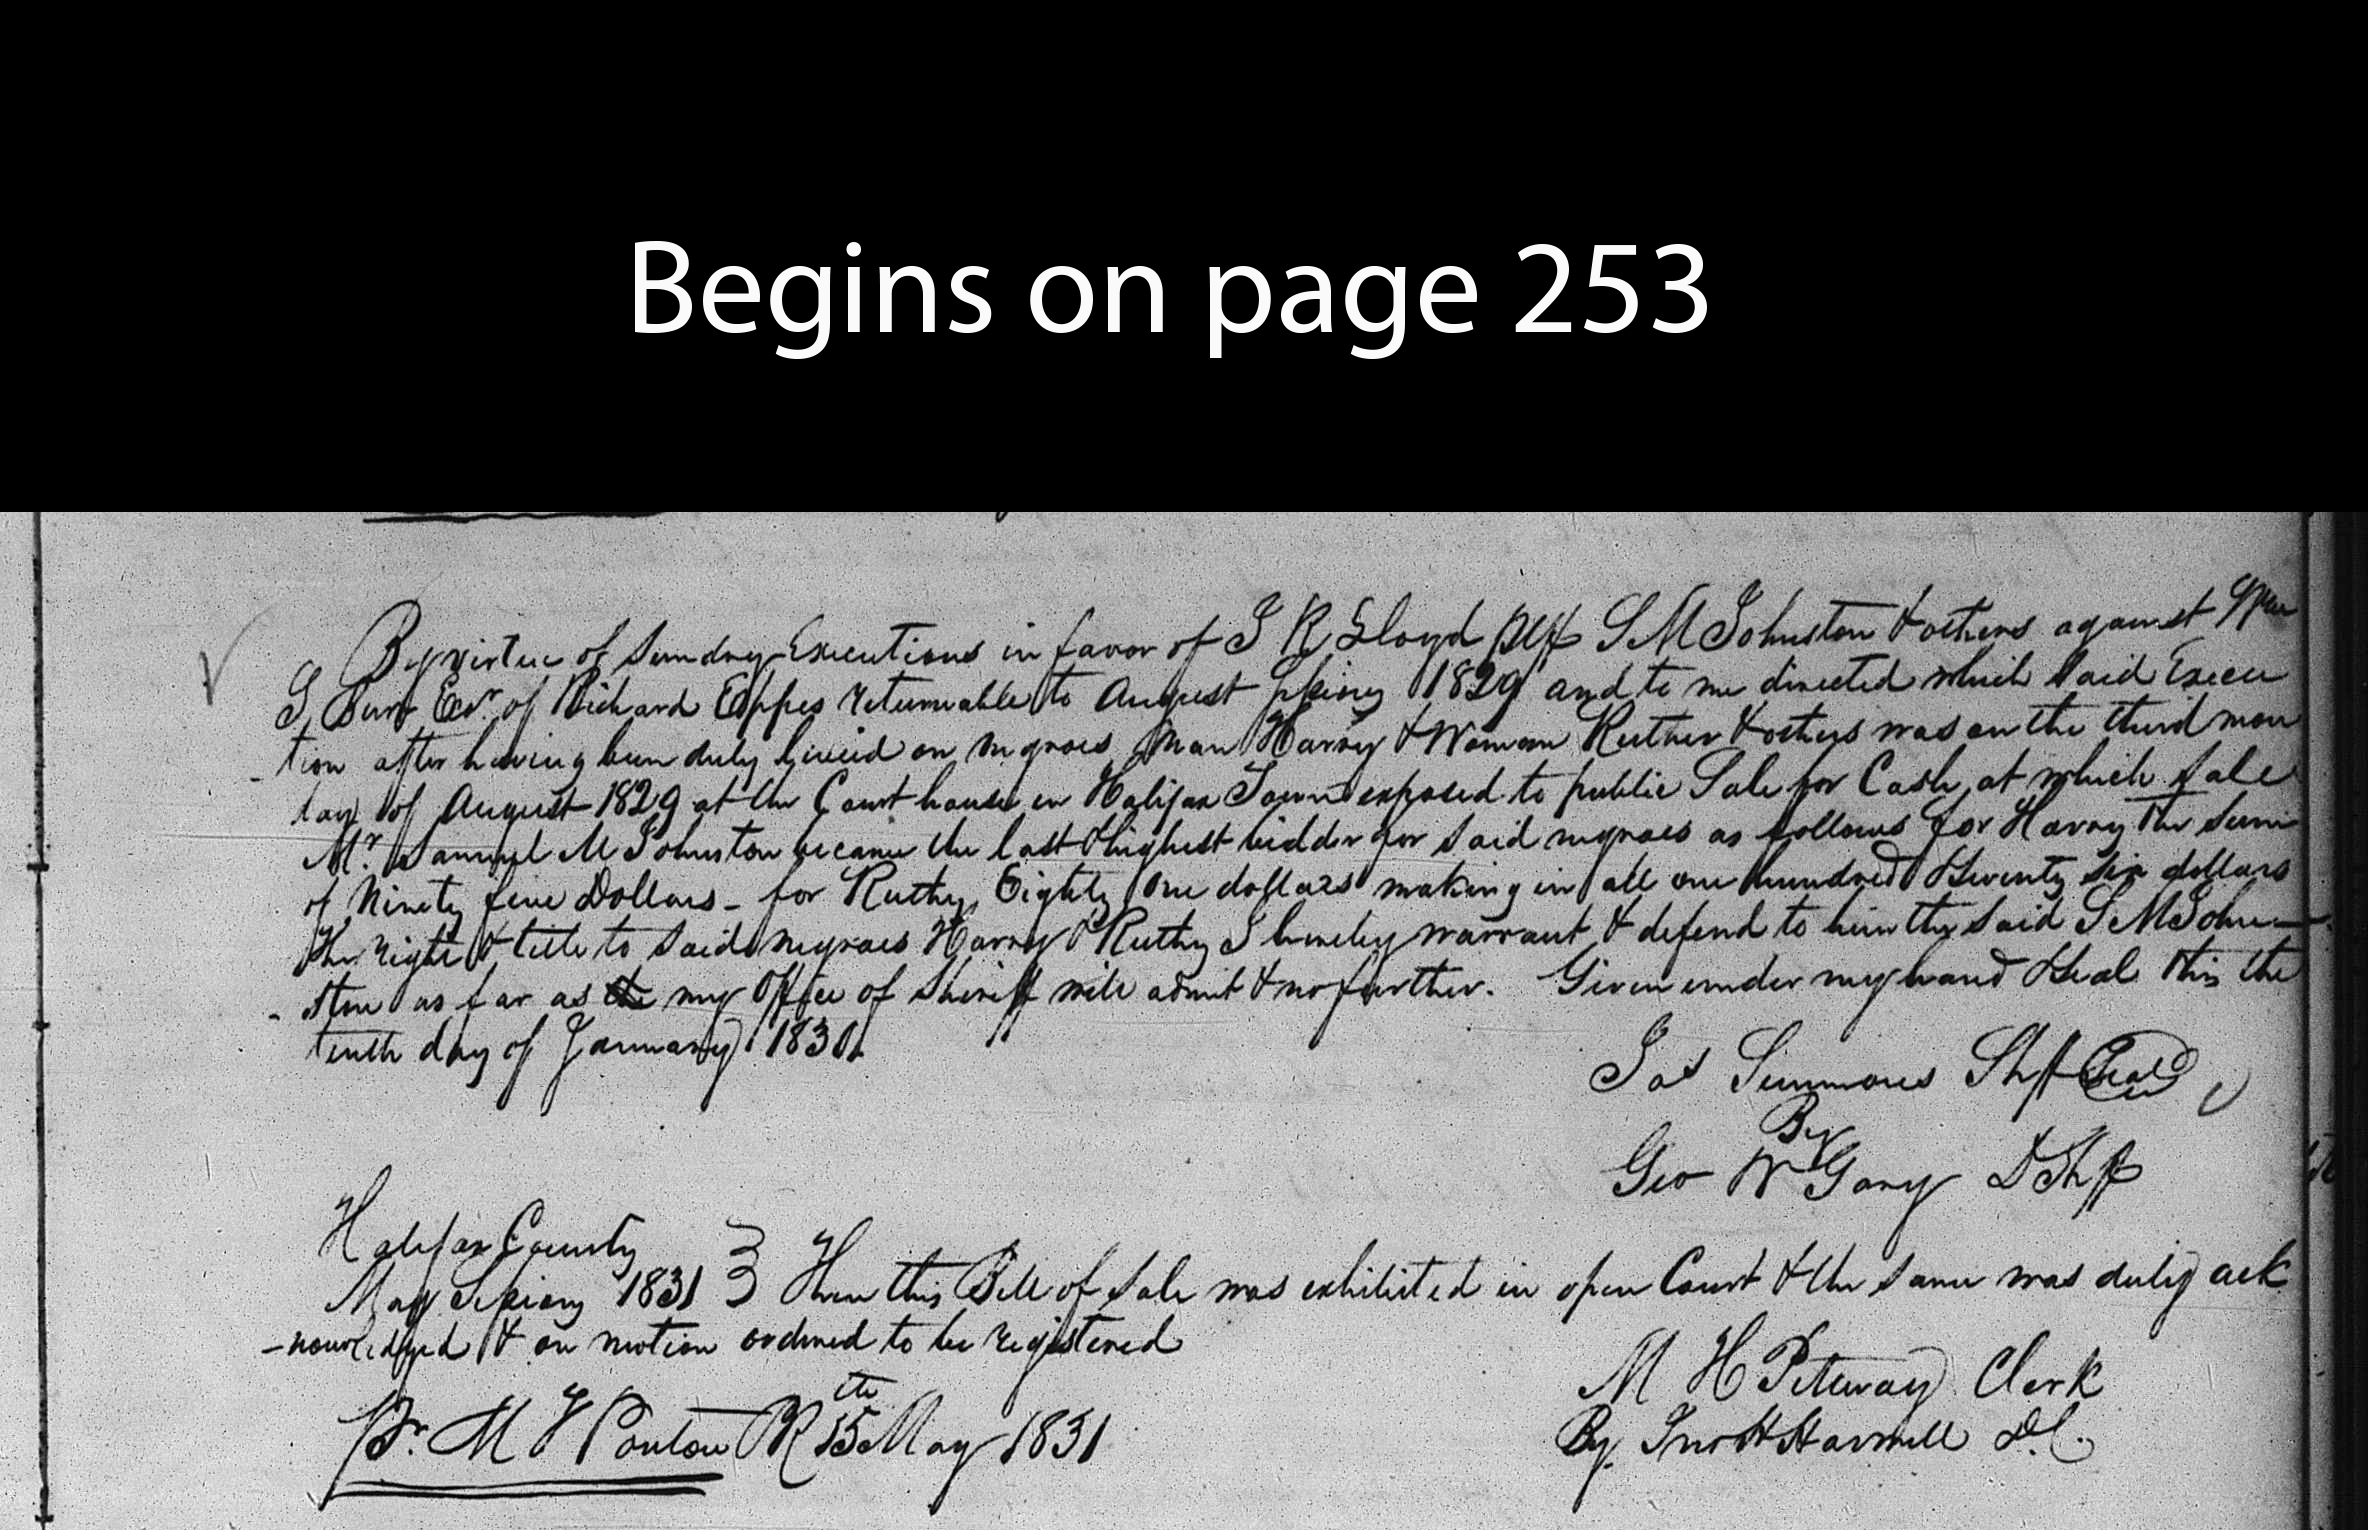 Begins on page 253
By virtue of Sundry Executions in favor of J R Lloyd S M Johnston & others against
J Burt Exr. of Richard Eppes returnable to August Spring 1829 and to me directed which said Execu
- tion after having been duly levied on negroes man Harry & Woman Ruther & others was on the third mon
day of August 1829 at the Court house in Halifax Town exposed to public Sale for Cash, at which Sale
Mr. Samuel M Johnston became the last & highest bidder for said negroes as follows for Harry the Sum
of Ninety five Dollars - for Ruthy, Eighty One dollars making in all one hundred & Seventy Six dollars
The right & title to said negroes Harry & Ruthy I hereby warrant & defend to him the said S M John -
- ston as far as the my Office of Sheriff will admit & no further. Given under my hand & Seal this the
tenth day of January 1830.
Jas Simmons Shff Seal
By
Geo W Gary D Shff
Halifax County
May Sessions 1831 } Then this Bill of Sale was exhibited in open Court & the same was duly ack
- nowledged & on motion ordered to be registered
M H Pitway Clerk
Pr. M F Ponton PR 15th May 1831
By. Jno H Harwell D.C.